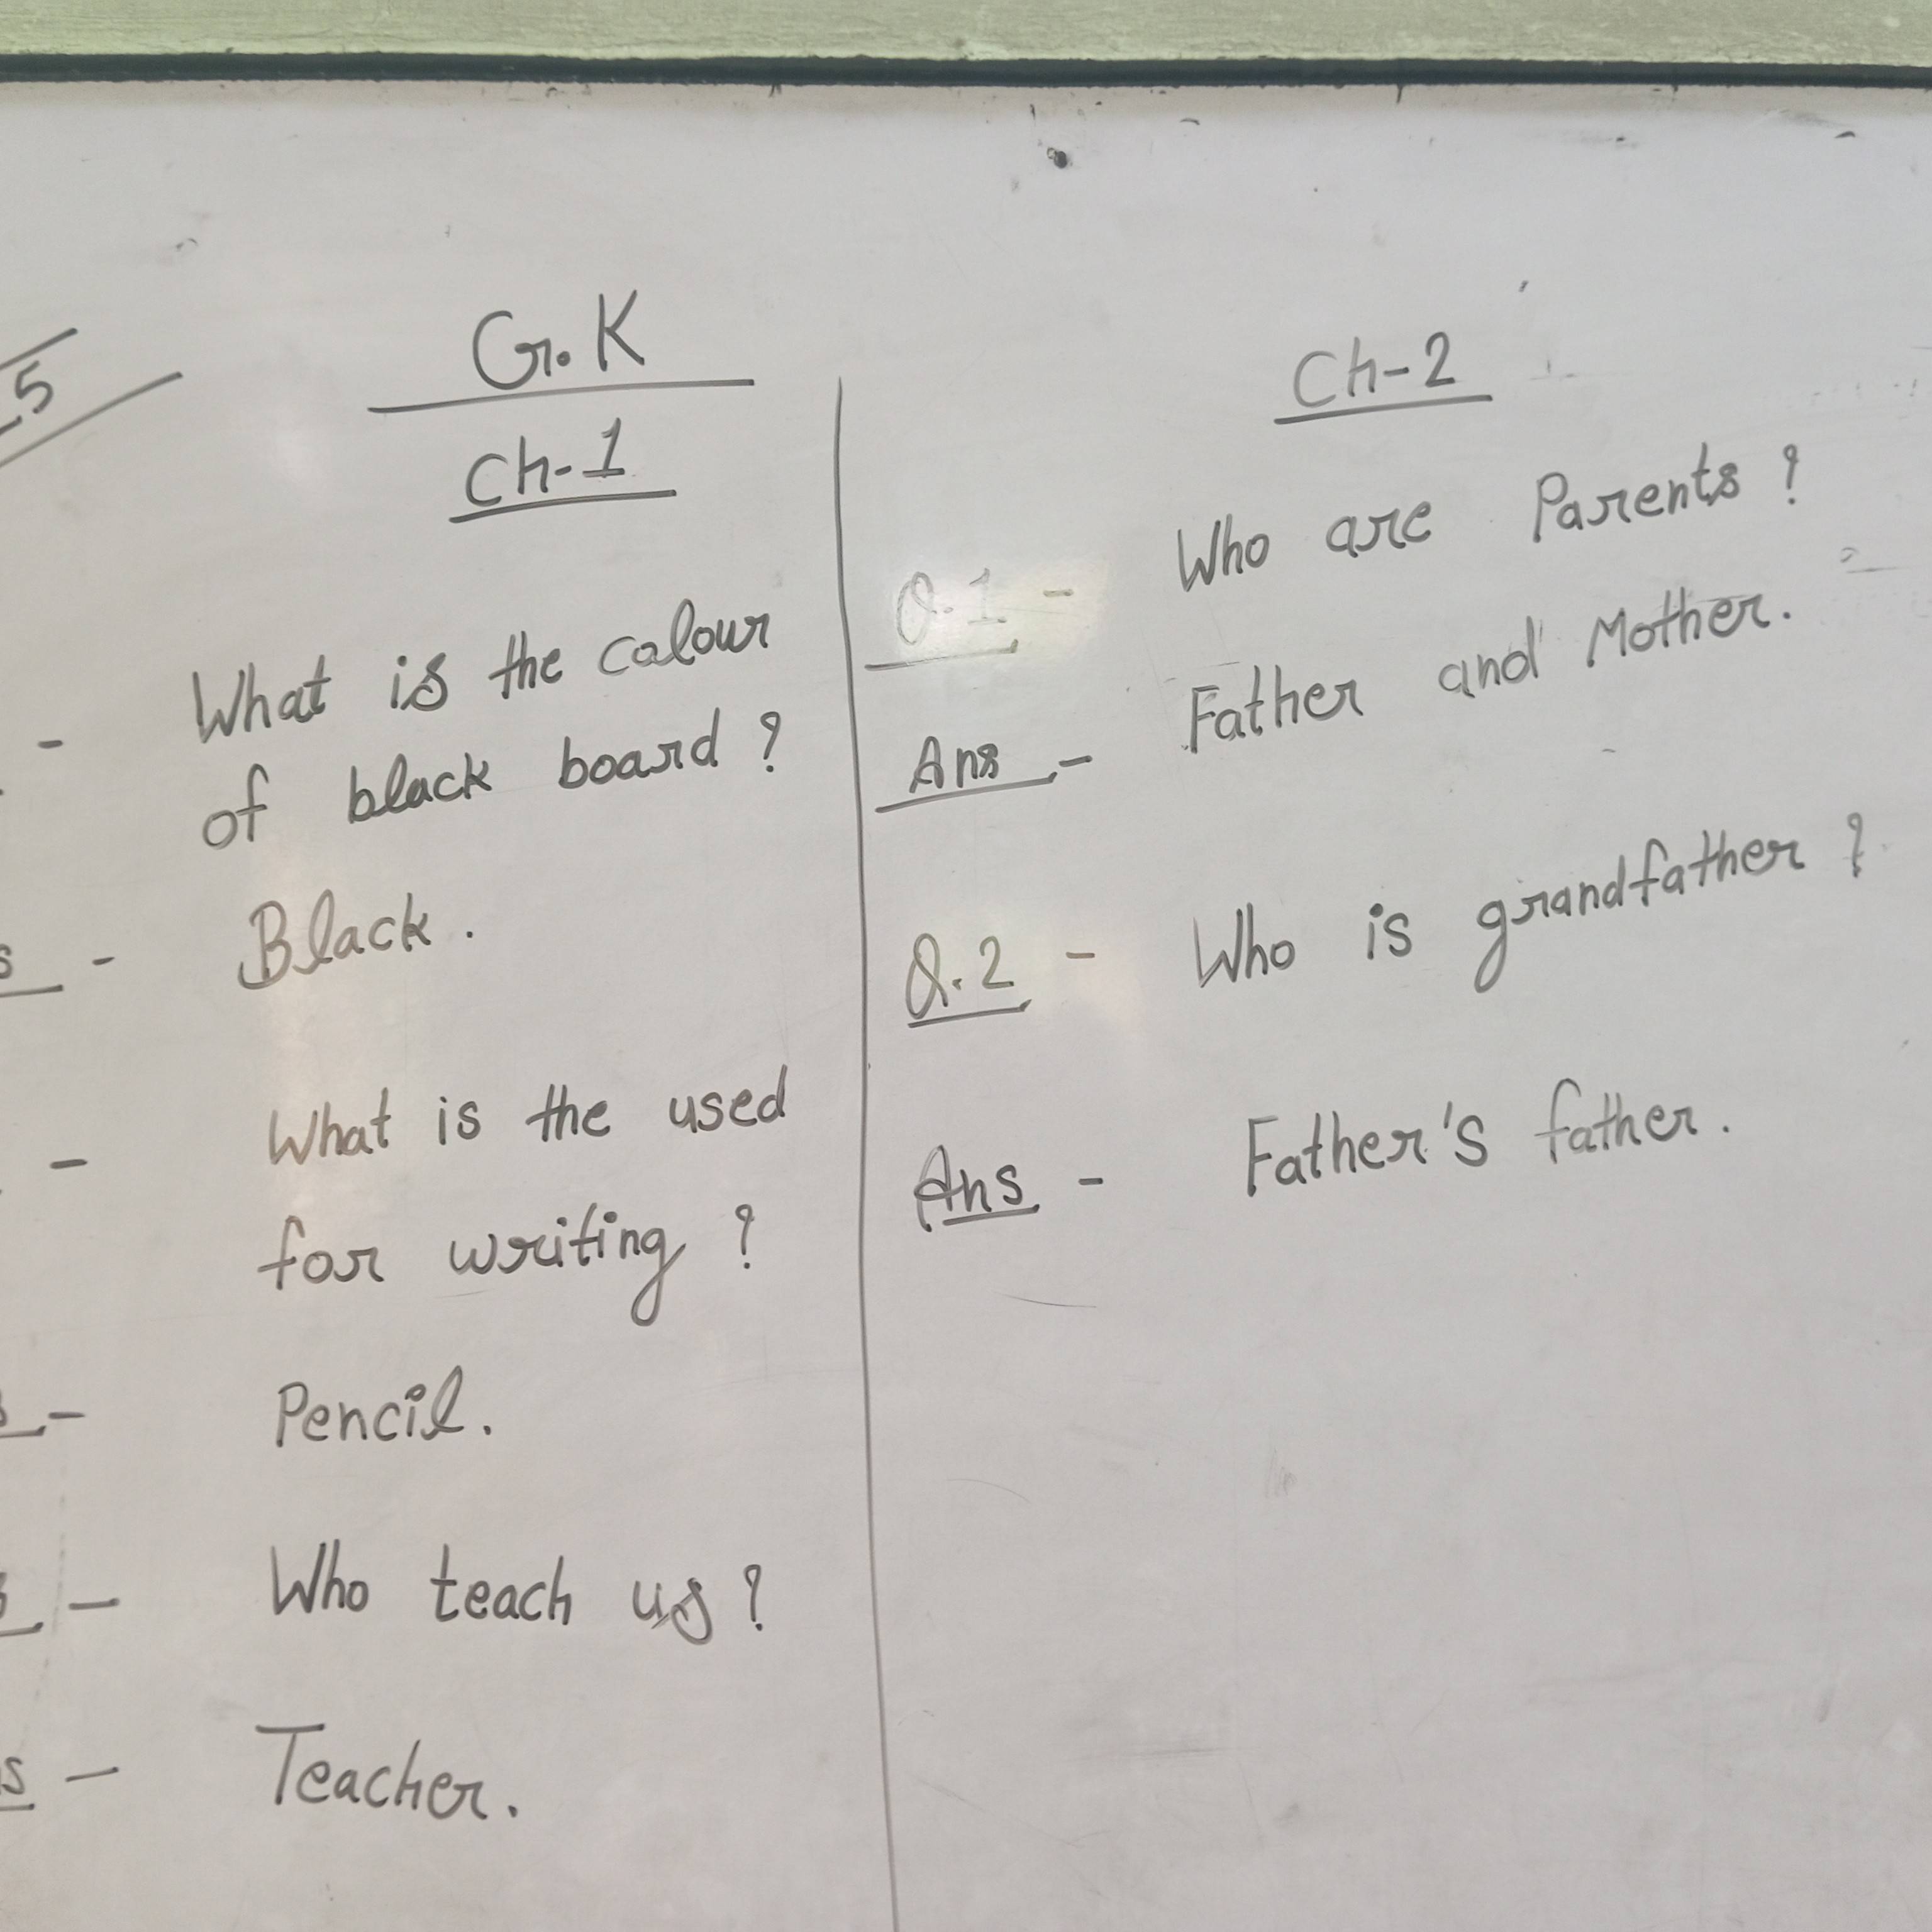 5
G.K
Ch-1
- What is the colour
of black board ?
s - Black.
- What is the used
for writing ?
s - Pencil.
- Who teach us ?
s - Teacher.
Ch-2
Q.1 - Who are Parents ?
Ans - Father and Mother.
Q.2 - Who is grandfather ?
Ans - Father's father.